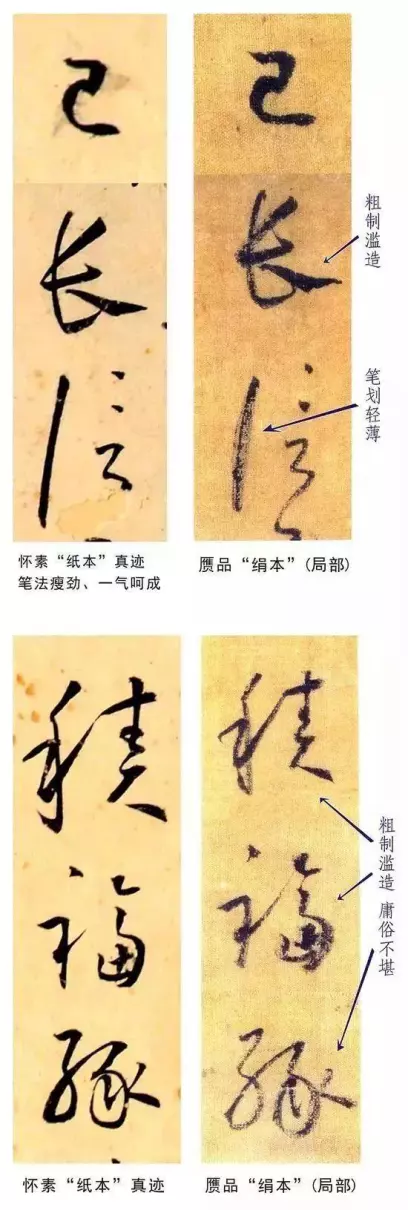 己长信
己长信
粗制滥造
笔划轻薄
怀素“纸本”真迹
笔法瘦劲、一气呵成
赝品“绢本”(局部)
積福緣
積福緣
粗制滥造 庸俗不堪
怀素“纸本”真迹
赝品“绢本”(局部)